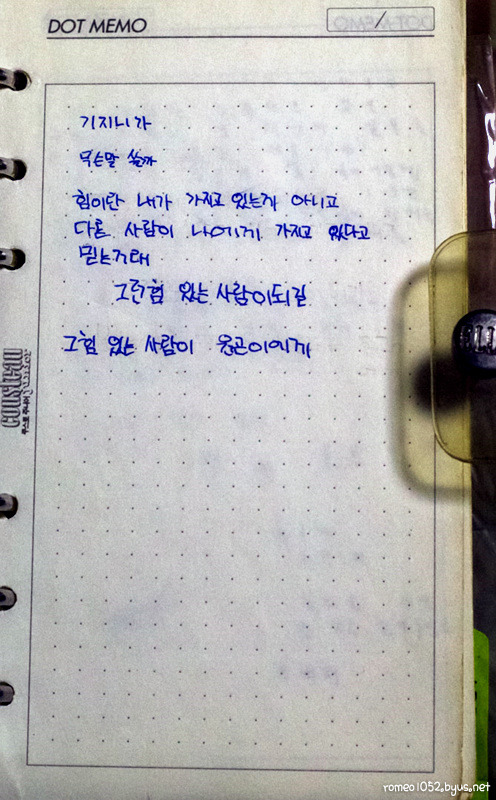 DOT MEMO
기지니가
무슨말 쓸까
힘이란 내가 가지고 있는게 아니고
다른 사람이 나에게 가지고 있다고
믿는거래
그런힘 있는 사람이되길
그힘 있는 사람이 원곤이에게
romeo1052.byus.net